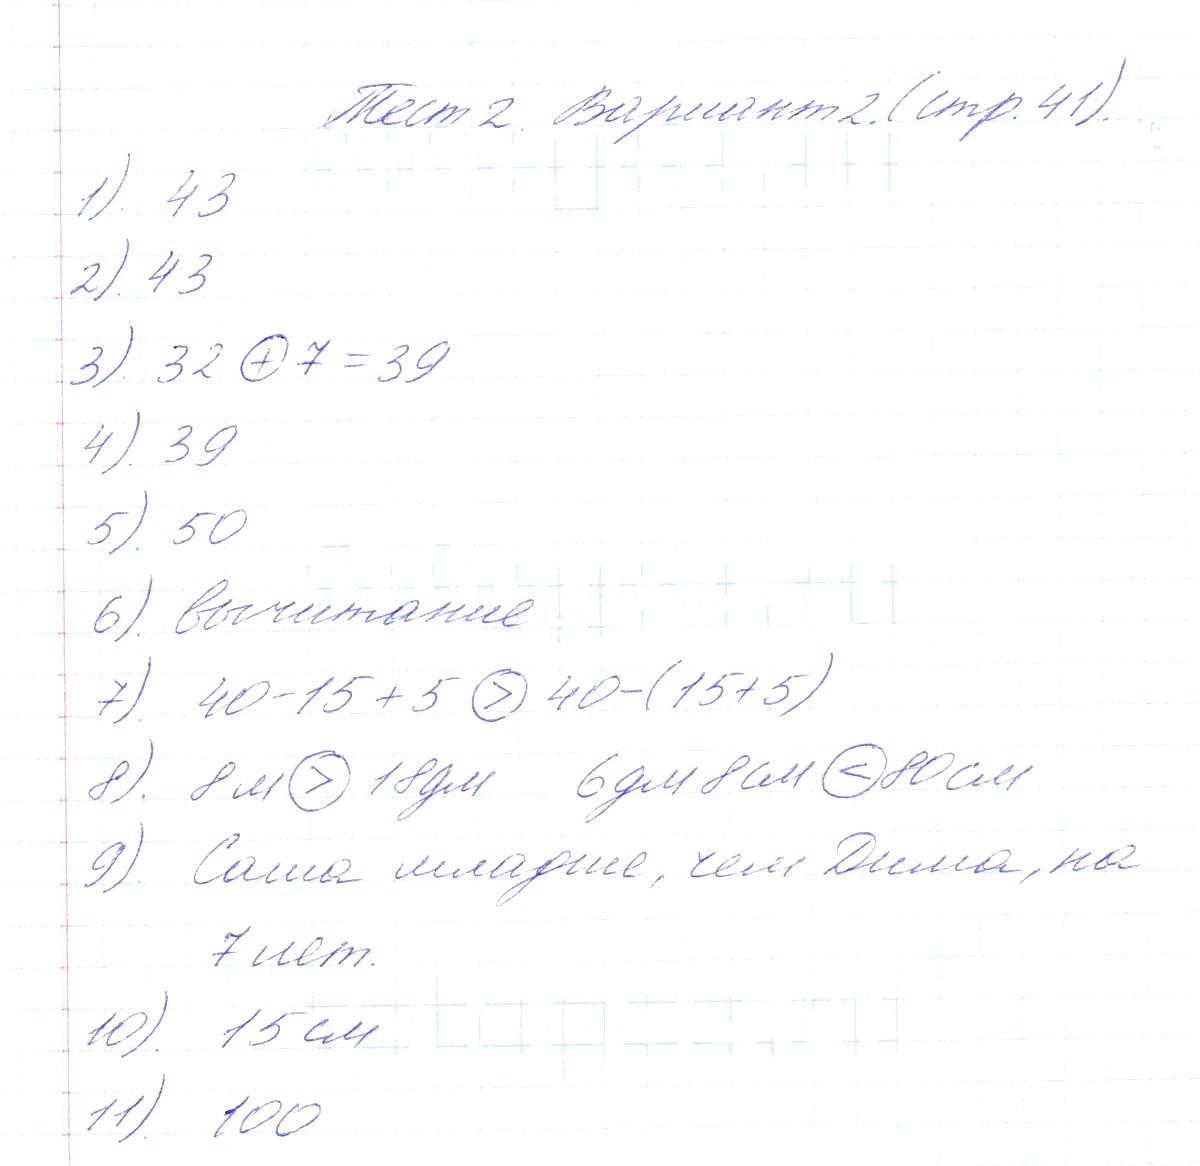 Тест 2. Вариант 2. (стр. 41).
1). 43
2). 43
3). 32 + 7 = 39
4). 39
5). 50
6). вычитание
7). 40 - 15 + 5 > 40 - (15 + 5)
8). 8 м > 18 дм 6 дм 8 см < 80 см
9). Саша младше, чем Дима, на
7 лет.
10). 15 см
11). 100